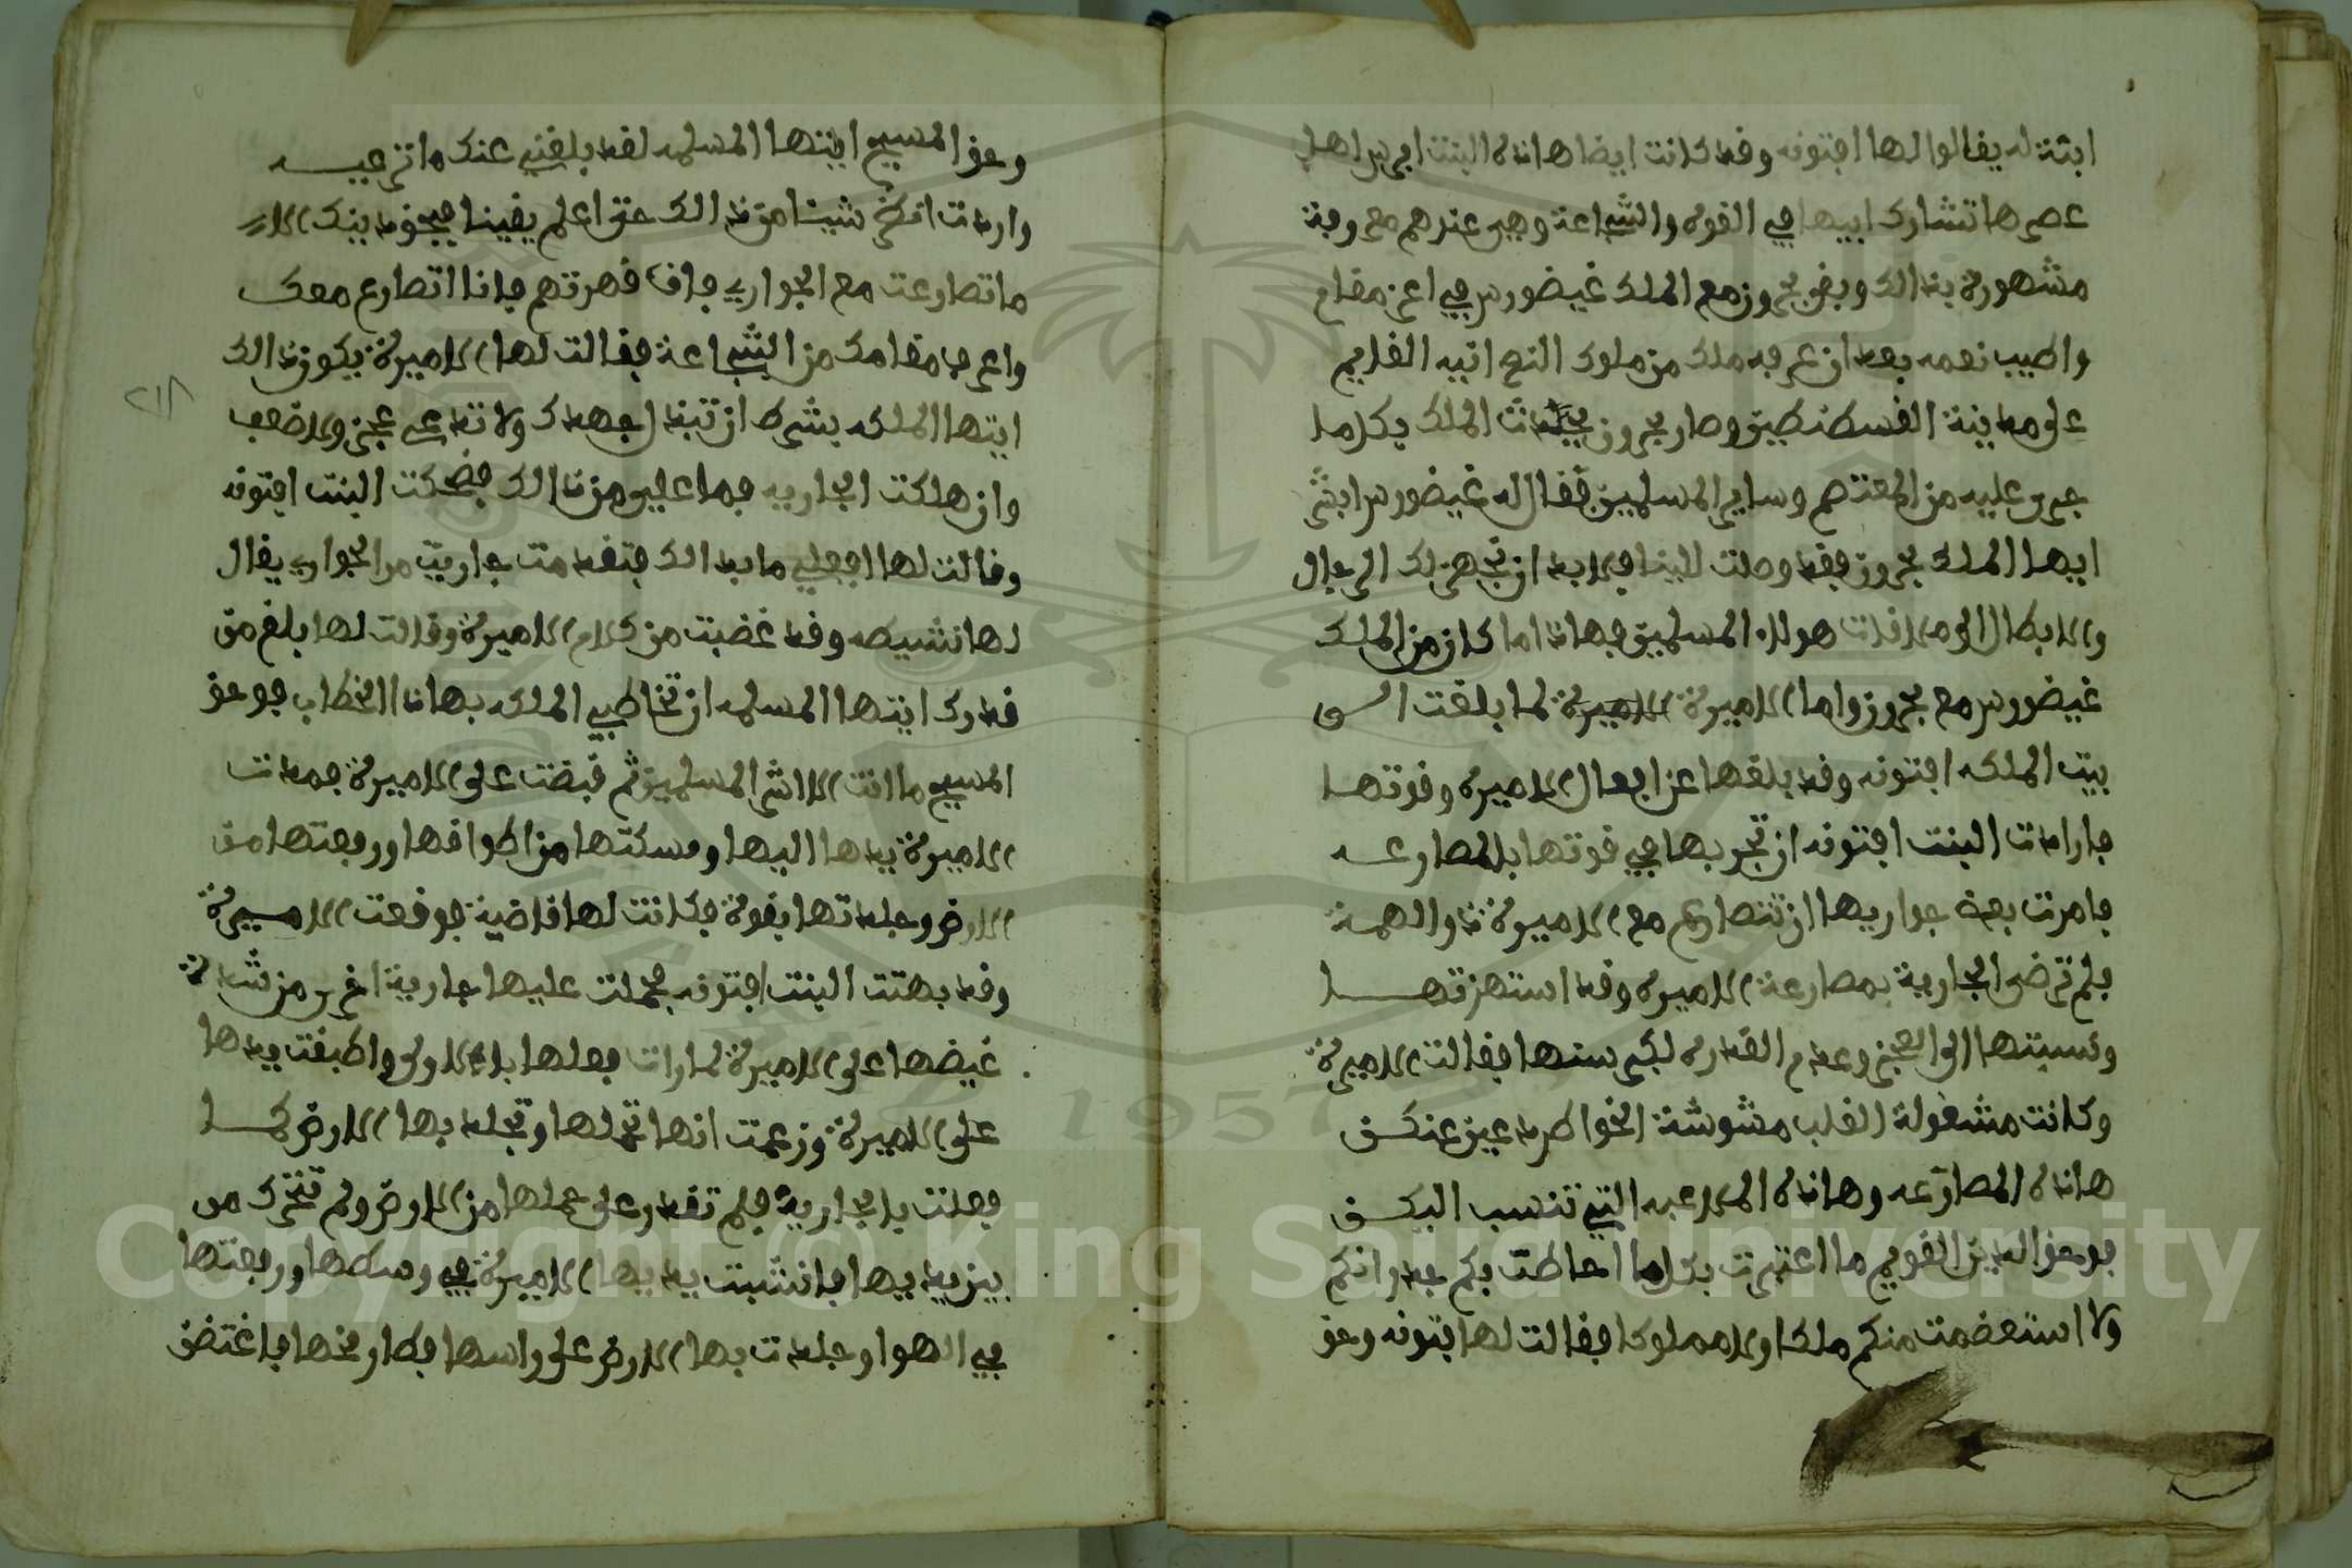 ابنة له يقالوا لها افتونه وقد كانت ايضا هاذه البنت افرس اهل
عصرها تشارك ابيها في القوه والشجاعة وهي عندهم معروفة
مشهورة بذالك وبقى بحرون مع الملك غيضورس في اعز مقام
واطيب نعمه بعد ان عرفه ملك من ملوك النصرانيه القديم
على مدينة القسطنطين وصار بحرون يحدث الملك بكلما
جرى عليه من المعتصم وساير المسلمين فقال له غيضورس ابشر
ايها الملك بحرون فقد وصلت الينا فلا بد ان نجهز لك الرجال
والابطال الى ملاقات هولاء المسلمين فهاذا ما كان من الملك
غيضورس مع بحرون واما الاميرة الاميرة لما بلغت الى
بيت الملكه افتونه وقد بلغها عن افعال الاميره وقوتها
فارادت البنت افتونه ان تجربها في قوتها بالمصارعه
فامرت بعض جواريها ان تتصارع مع الاميرة ذو الهمة
فلم ترضى الجارية بمصارعة الاميره وقد استهزتها
ونسبتها الى العجز وعدم القدره لكبر سنها فقالت الاميرة
وكانت مشغولة القلب مشوشة الخواطر دعين عنكن
هاذه المصارعه وهاذه الملاعبه التي تنسب اليكن
فوحق الدين القويم ما اعتبرت بكلما احاطت بكم جدرانكم
ولا استعضمت منكم ملكا ولا مملوكا فقالت لها فتونه وحق
وحق المسيح ايتها المسلمه لقد بلغني عنك ما ترعبيه
واردت انظر شيئا من ذالك حتى اعلم يقينا فبحق دينك الا
ما تصارعت مع الجواري فان قهرتهم فانا اتصارع معك
واعرف مقامك من الشجاعة فقالت لها الاميرة يكون ذالك
ايتها الملكه بشرط ان تبذل جهدك ولا تدعي عجز ولا ضعف
وان هلكت الجاريه فما علي من ذالك فضحكت البنت افتونه
وقالت لها افعلي ما بدالك فتقدمت جاريت من الجواري يقال
لها نشيطه وقد غضبت من كلام الاميرة وقالت لها بلغ من
قدرك ايتها المسلمه ان تخاطبي الملكه بهاذا الخطاب فوحق
المسيح ما انت الا اشر المسلمين ثم قبضت على الاميرة فمدت
الاميرة يدها اليها ومسكتها من اطواقها ورفعتها من
الارض وجلدتها بقوة فكانت لها قاضية فوقعت الاسيرة
وقد بهتت البنت افتونه فحملت عليها جارية اخرى من شدة
غيضها على الاميرة لما رات فعلها بالاولى واطبقت يدها
على الاميرة وزعمت انها تحملها وتجلد بها الارض كما
فعلت بالجارية فلم تقدر على حملها من الارض ولم تتحرك من
بين يديها فانشبت يديها الاميرة في وسطها ورفعتها
في الهوا وجلدت بها الارض على راسها فطار مخها فاغتضن
٢١٨
Copyright © King Saud University
1957